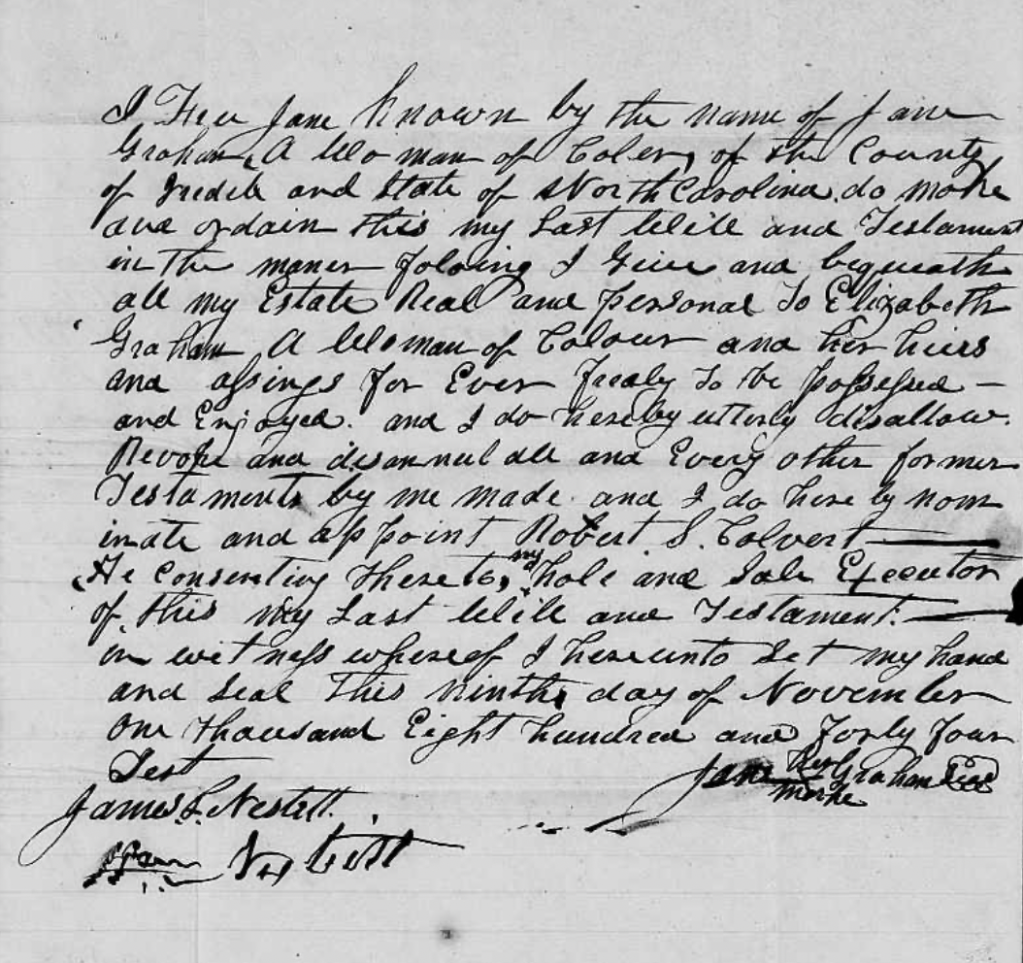 I Free Jane known by the name of Jane
Graham, A Woman of Coler, of the County
of Iredele and State of North Carolina. do make
and ordain this my Last Will and Testament
in the maner foloing I Give and bequeath
all my Estate Real and personal To Elizabeth
Graham A Woman of Colour and her heirs
and assings for Ever freely To be possessed —
and Enjoyed. and I do hereby utterly disallow.
Revoke and disannul all and Every other former
Testaments by me made and I do here by nom
inate and appoint Robert S. Colvert
He Consenting there to, my hole and Sole Executor
of this my Last Will and Testament.
in witness whereof I hereunto Set my hand
and Seal This ninth day of November
One thousand Eight hundred and forty four
Test
Jane her Graham Seal
marke
James L. Nesbitt.
Nesbitt